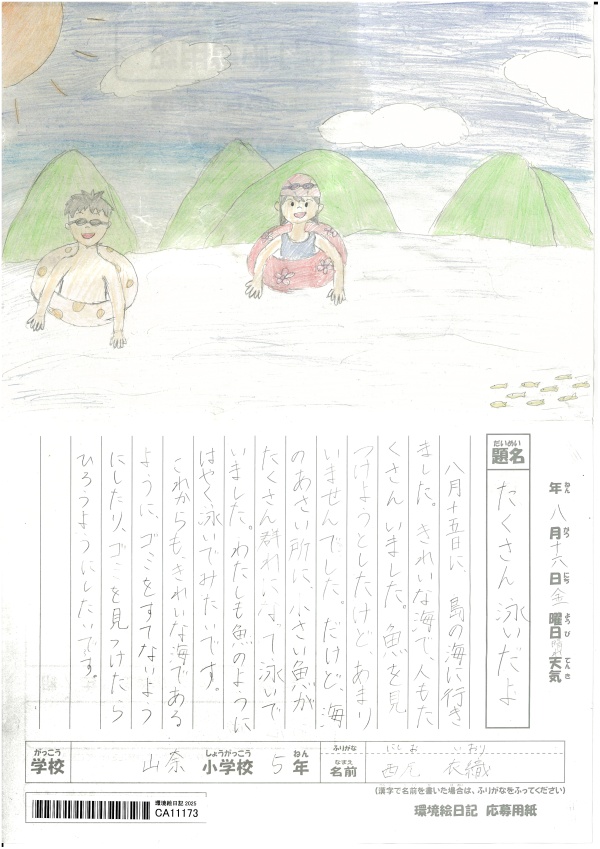 だいめい
題名 たくさん泳いだよ
年 八月十六日金曜日 晴 天気
ねん がつ にち ようび てんき
八月十五日に、島の海に行き
ました。きれいな海で人もた
くさんいました。魚を見
つけようとしたけどあまり
いませんでした。だけど、海
のあさい所に、小さい魚が
たくさん群れになって泳いで
いました。わたしも魚のように
はやく泳いでみたいです。
これからも、きれいな海である
ように、ゴミをすてないよう
にしたり、ゴミを見つけたら
ひろうようにしたいです。
がっこう しょうがっこう ねん ふりがな にしお いおり
学校 山奈 小学校 5年 なまえ 名前 西尾 衣織
(漢字で名前を書いた場合は、ふりがなをふってください)
環境絵日記 応募用紙
環境絵日記 2025
CA11173